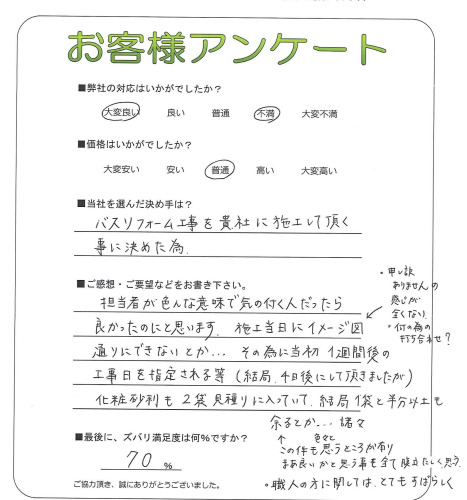 お客様アンケート
■弊社の対応はいかがでしたか?
大変良い 良い 普通 不満 大変不満
■価格はいかがでしたか?
大変安い 安い 普通 高い 大変高い
■当社を選んだ決め手は?
バスリフォーム工事を貴社に施工して頂く
事に決めた為.
■ご感想・ご要望などをお書き下さい。
担当者が色んな意味で気の付く人だったら
良かったのにと思います. 施工当日にイメージ図
通りにできないとか… その為に当初1週間後の
工事日を指定される等(結局、4日後にして頂きましたが)
化粧砂利も2袋見積りに入っていて、結局1袋と半分以上も
余るとか… 諸々
↑ 色々と
この件も思うところが有り
まあ良いかと思う事も全て腹立たしく思う.
・職人の方に関しては、とてもすばらしく
・申し訳
ありませんの
感じが
全くない.
・何の為の
打ち合わせ?
■最後に、ズバリ満足度は何%ですか?
70 %
ご協力頂き、誠にありがとうございました。